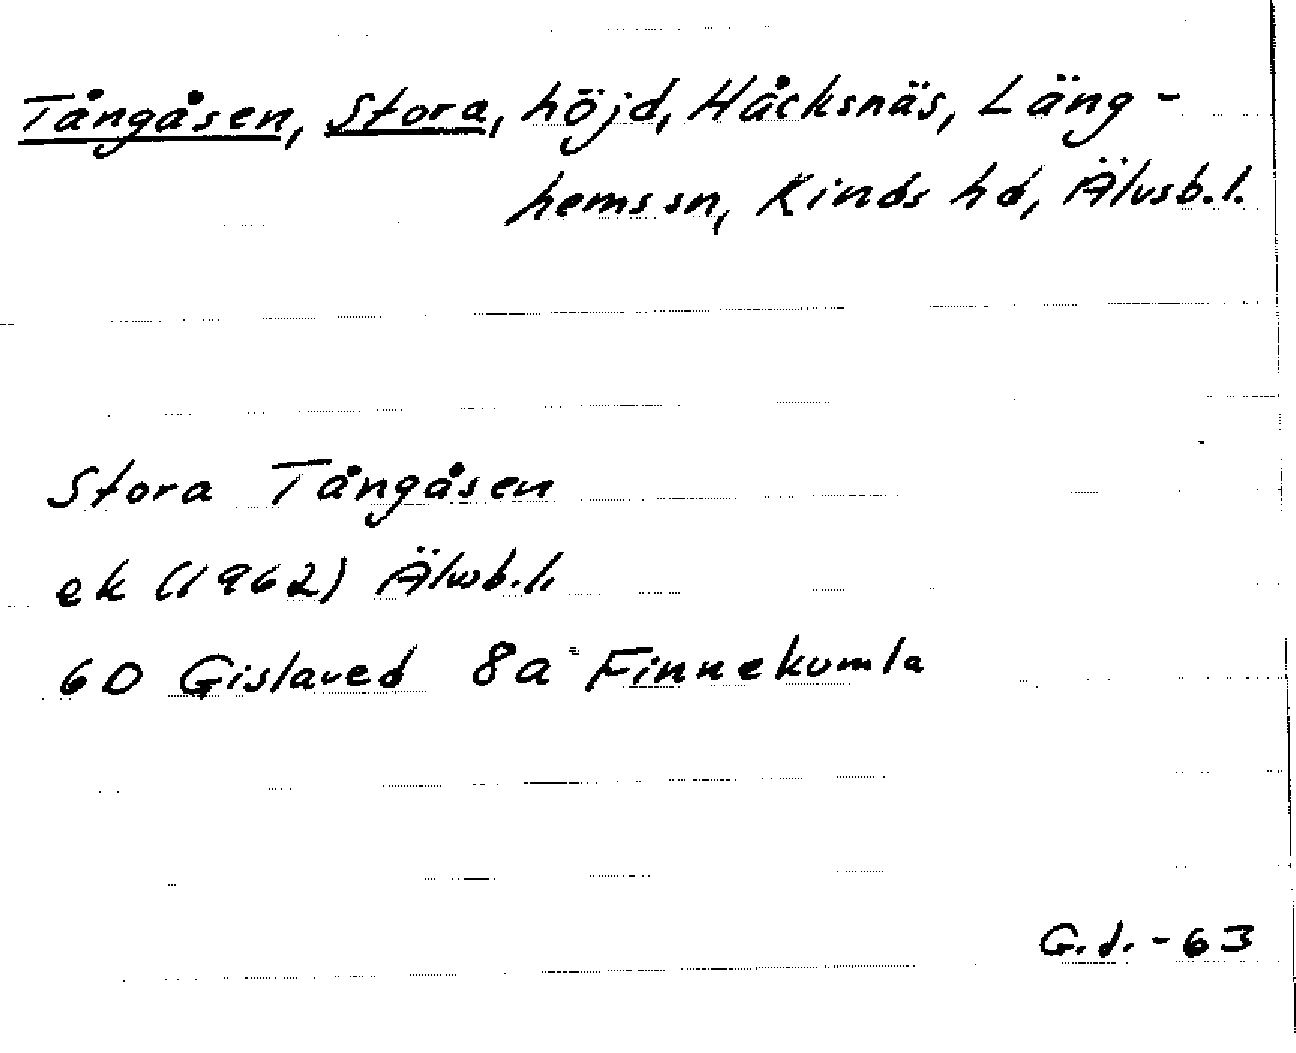 Tångåsen, Stora, höjd, Håcksnäs, Läng-
hems sn, Kinds hd, Älvsb.l.
Stora Tångåsen
ek (1962) Älvsb.l.
6D Gislaved 8a Finnekumla
G.d. -63